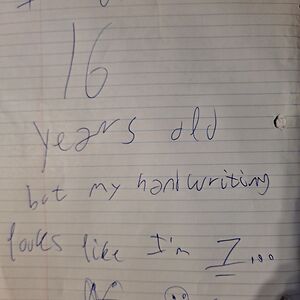 16
years old
but my hanlwriting
looks like I'm 7...